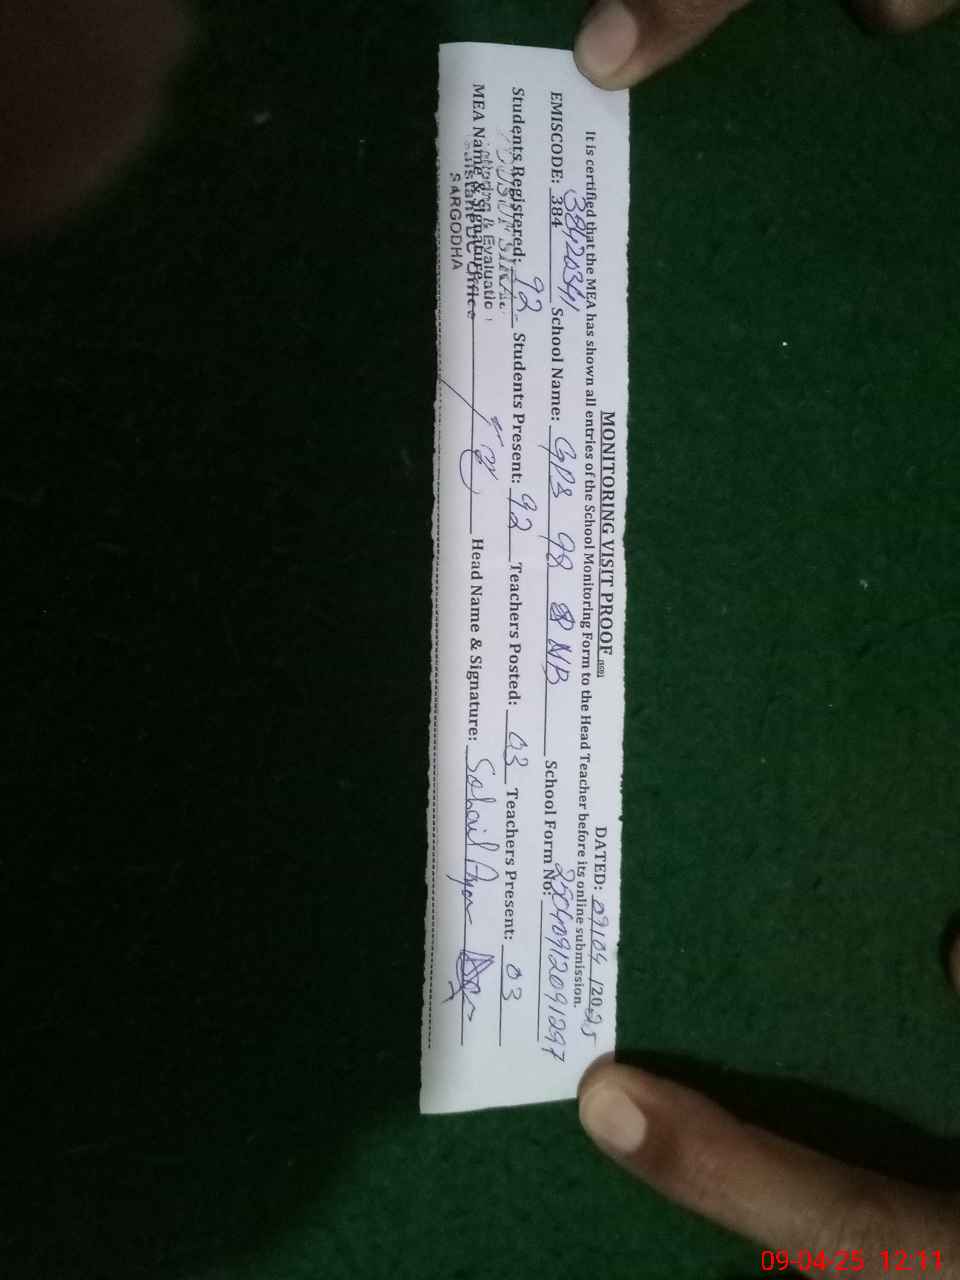 MONITORING VISIT PROOF
DATED: 09/04/2025
It is certified that the MEA has shown all entries of the School Monitoring Form to the Head Teacher before its online submission.
EMISCODE: 384 38420341 School Name: GPS 98 NB School Form No: 25040912091297
Students Registered: 92 Students Present: 92 Teachers Posted: 03 Teachers Present: 03
MEA Name & Signature: Head Name & Signature: Sohail
Evaluatio
SARGODHA
09-04-25 12:11